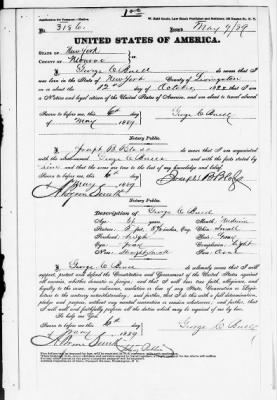 No. 3186. Issued May 7/89
UNITED STATES OF AMERICA.
STATE OF New York
COUNTY OF Monroe
I, George C Buell do swear that I
was born in the State of New York County of Livingston
on or about the 12 day of October, 1822 that I am a
Native and legal citizen of the United States of America, and am about to travel abroad
Sworn to before me, this 6th day George C Buell
of May 1889
Notary Public.
I, Joseph B. Bloss do swear that I am
acquainted with the above-named George C Buell and with the facts stated by
him, and that the same are true to the best of my knowledge and belief.
Sworn to before me, this 6th day Joseph B Bloss
of May 1889
Notary Public.
Description of George C Buell
Age: Mouth: Medium
Stature: 5 feet, inches, Eng. Chin: Small
Forehead: High Hair: Gray
Eyes: Gray Complexion: Light
Nose: Straight Face: Oval
I, George C Buell do solemnly swear that I will
support, protect and defend the Constitution and Government of the United States against
all enemies, whether domestic or foreign; and that I will bear true faith, allegiance, and
loyalty to the same, any ordinance, resolution or law of any State, Convention or Legis-
lature to the contrary notwithstanding; and further, that I do this with a full determination,
pledge and purpose, without any mental reservation or evasion whatsoever; and further, that
I will well and faithfully perform all the duties which may be required of me by law.
So help me God.
Sworn to before me this 6th day George C Buell
of May 1889
Notary Public